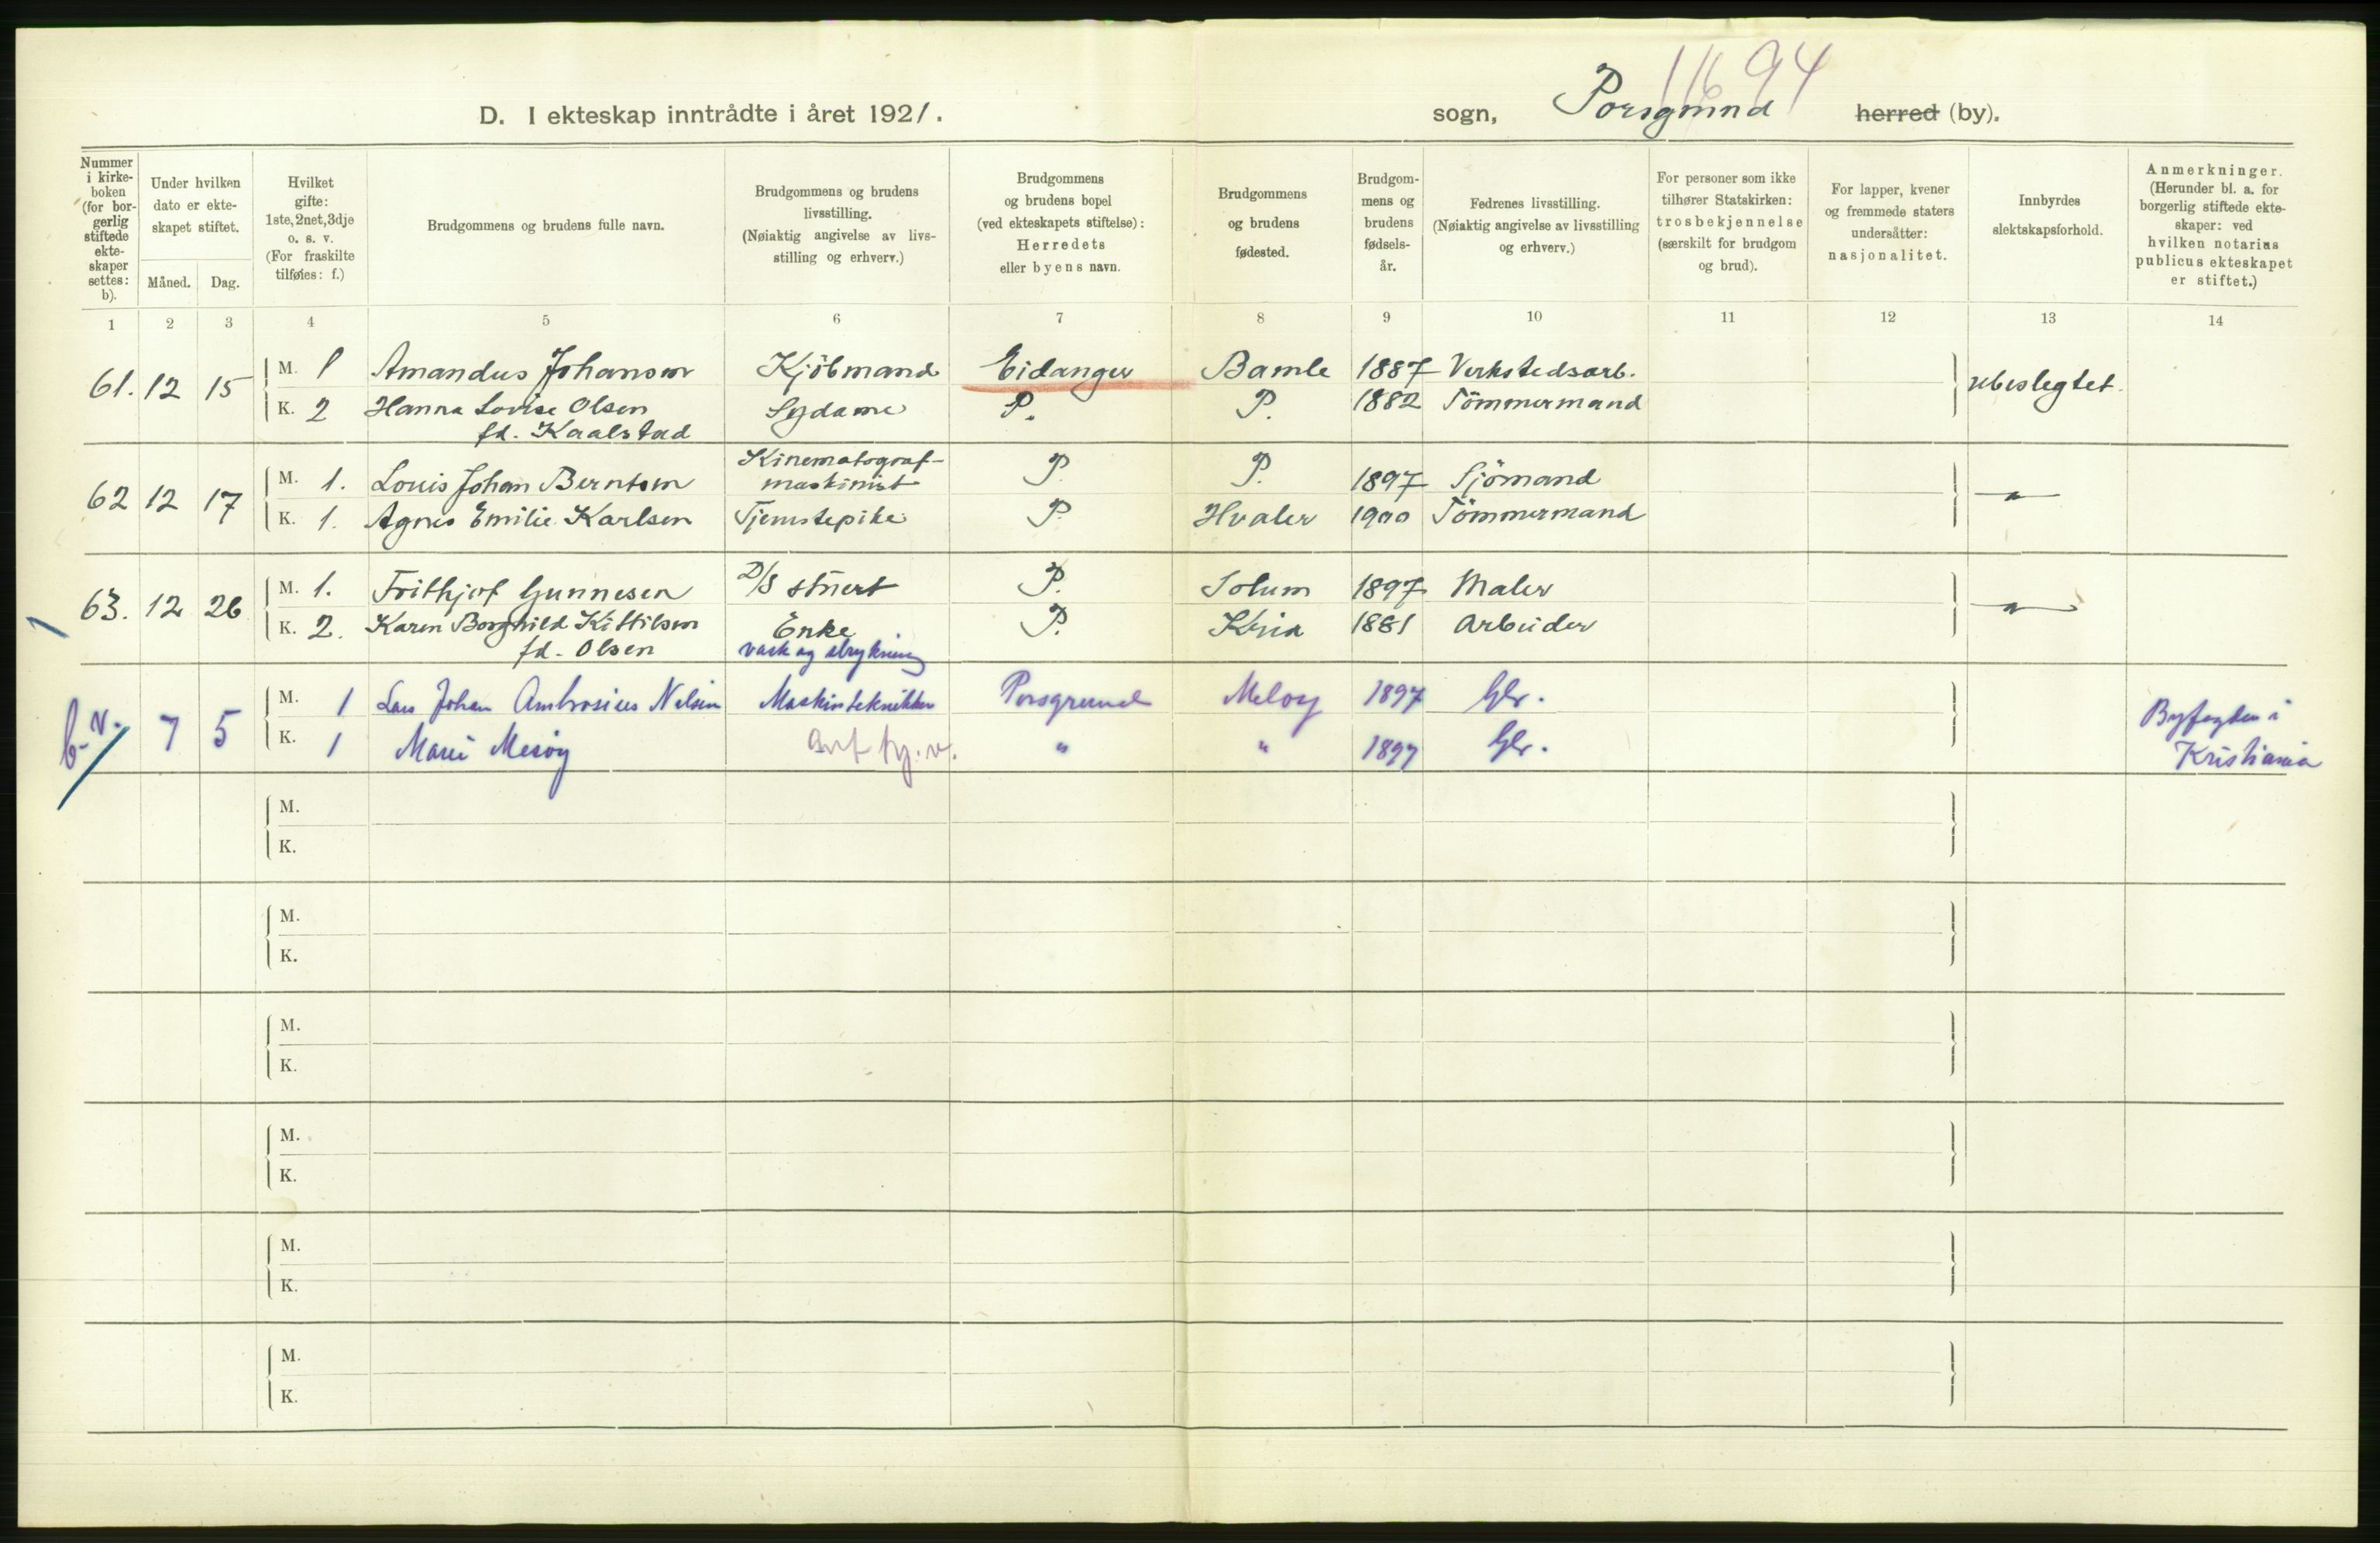 1694
D. I ekteskap inntrådte i året 1921.
sogn, Porsgrund herred (by).
Nummer i kirke-boken (for bor-gerlig stiftede ekte-skaper settes: b).
Under hvilken dato er ekte-skapet stiftet.
Måned. Dag.
Hvilket gifte: 1ste, 2net, 3dje o. s. v. (For fraskilte tilføies: f.)
Brudgommens og brudens fulle navn.
Brudgommens og brudens livsstilling. (Nøiaktig angivelse av livs-stilling og erhverv.)
Brudgommens og brudens bopel (ved ekteskapets stiftelse): Herredets eller byens navn.
Brudgommens og brudens fødested.
Brudgom-mens og brudens fødsels-år.
Fedrenes livsstilling. (Nøiaktig angivelse av livsstilling og erhverv.)
For personer som ikke tilhører Statskirken: trosbekjennelse (særskilt for brudgom og brud).
For lapper, kvener og fremmede staters undersåtter: nasjonalitet.
Innbyrdes slektskapsforhold.
Anmerkninger. (Herunder bl. a. for borgerlig stiftede ekte-skaper: ved hvilken notarius publicus ekteskapet er stiftet.)
1 2 3 4 5 6 7 8 9 10 11 12 13 14
61. 12 15 M. 1 Amandus Johansen Kjöbmand Eidanger Bamle 1887 Verkstedsarb. ubeslegtet.
K. 2 Hanna Lovise Olsen Sydame P. P. 1882 Tömmermand
fd. Kaalstad
62 12 17 M. 1. Louis Johan Berntsen Kinematograf-maskinist P. P. 1897 Sjömand
K. 1. Agnes Emilie Karlsen Tjenstepike P. Hvaler 1900 Tömmermand
63. 12 26 M. 1. Frithjof Gunnesen D/S stuert P. Solum 1897 Maler
K. 2. Karen Borghild Kittilsen Enke P. Kria 1881 Arbeider
fd. Olsen vask og strykning
b.v. 7 5 M. 1 Lars Johan Ambrosius Nilsen Maskintekniker Porsgrund Meløy 1897 Gbr.
K. 1 Marie Mesøy " " 1897 Gbr.
Byfogden i Kristiania
M.
K.
M.
K.
M.
K.
M.
K.
M.
K.
M.
K.